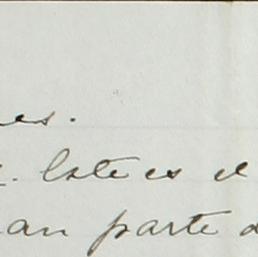 es.
Este es el
an parte d